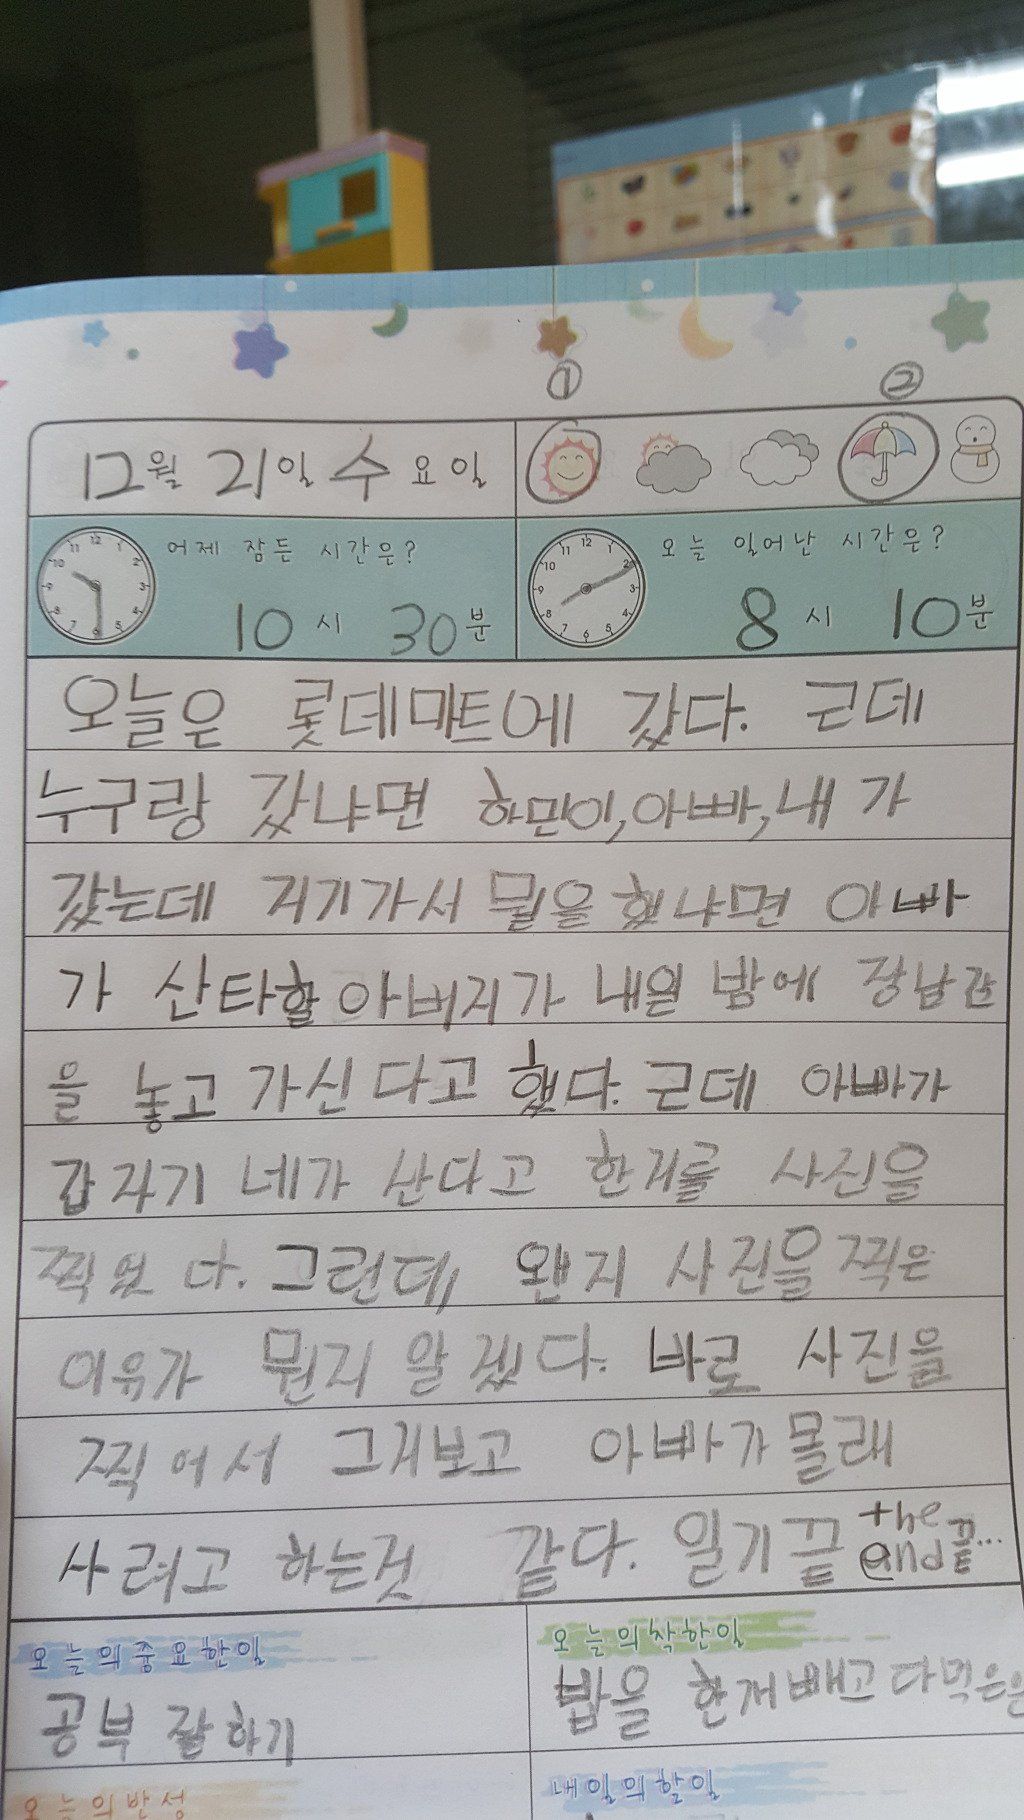 ① ②
12월 21일 수요일
어제 잠든 시간은?
10시 30분
오늘 일어난 시간은?
8시 10분
오늘은 롯데마트에 갔다. 근데
누구랑 갔냐면 하민이, 아빠, 내가
갔는데 거기가서 뭘을 했냐면 아빠
가 산타할아버지가 내일 밤에 장남감
을 놓고 가신다고 했다. 근데 아빠가
갑자기 네가 산다고 한거를 사진을
찍었다. 그런데, 왠지 사진을 찍은
이유가 뭔지 알겠다. 바로 사진을
찍어서 그거보고 아빠가 몰래
사려고 하는것 같다. 일기 끝 the end 끝...
오늘의중요한일
공부 잘하기
오늘의착한일
밥을 한개 빼고 다 먹은
오늘의반성
내일의할일